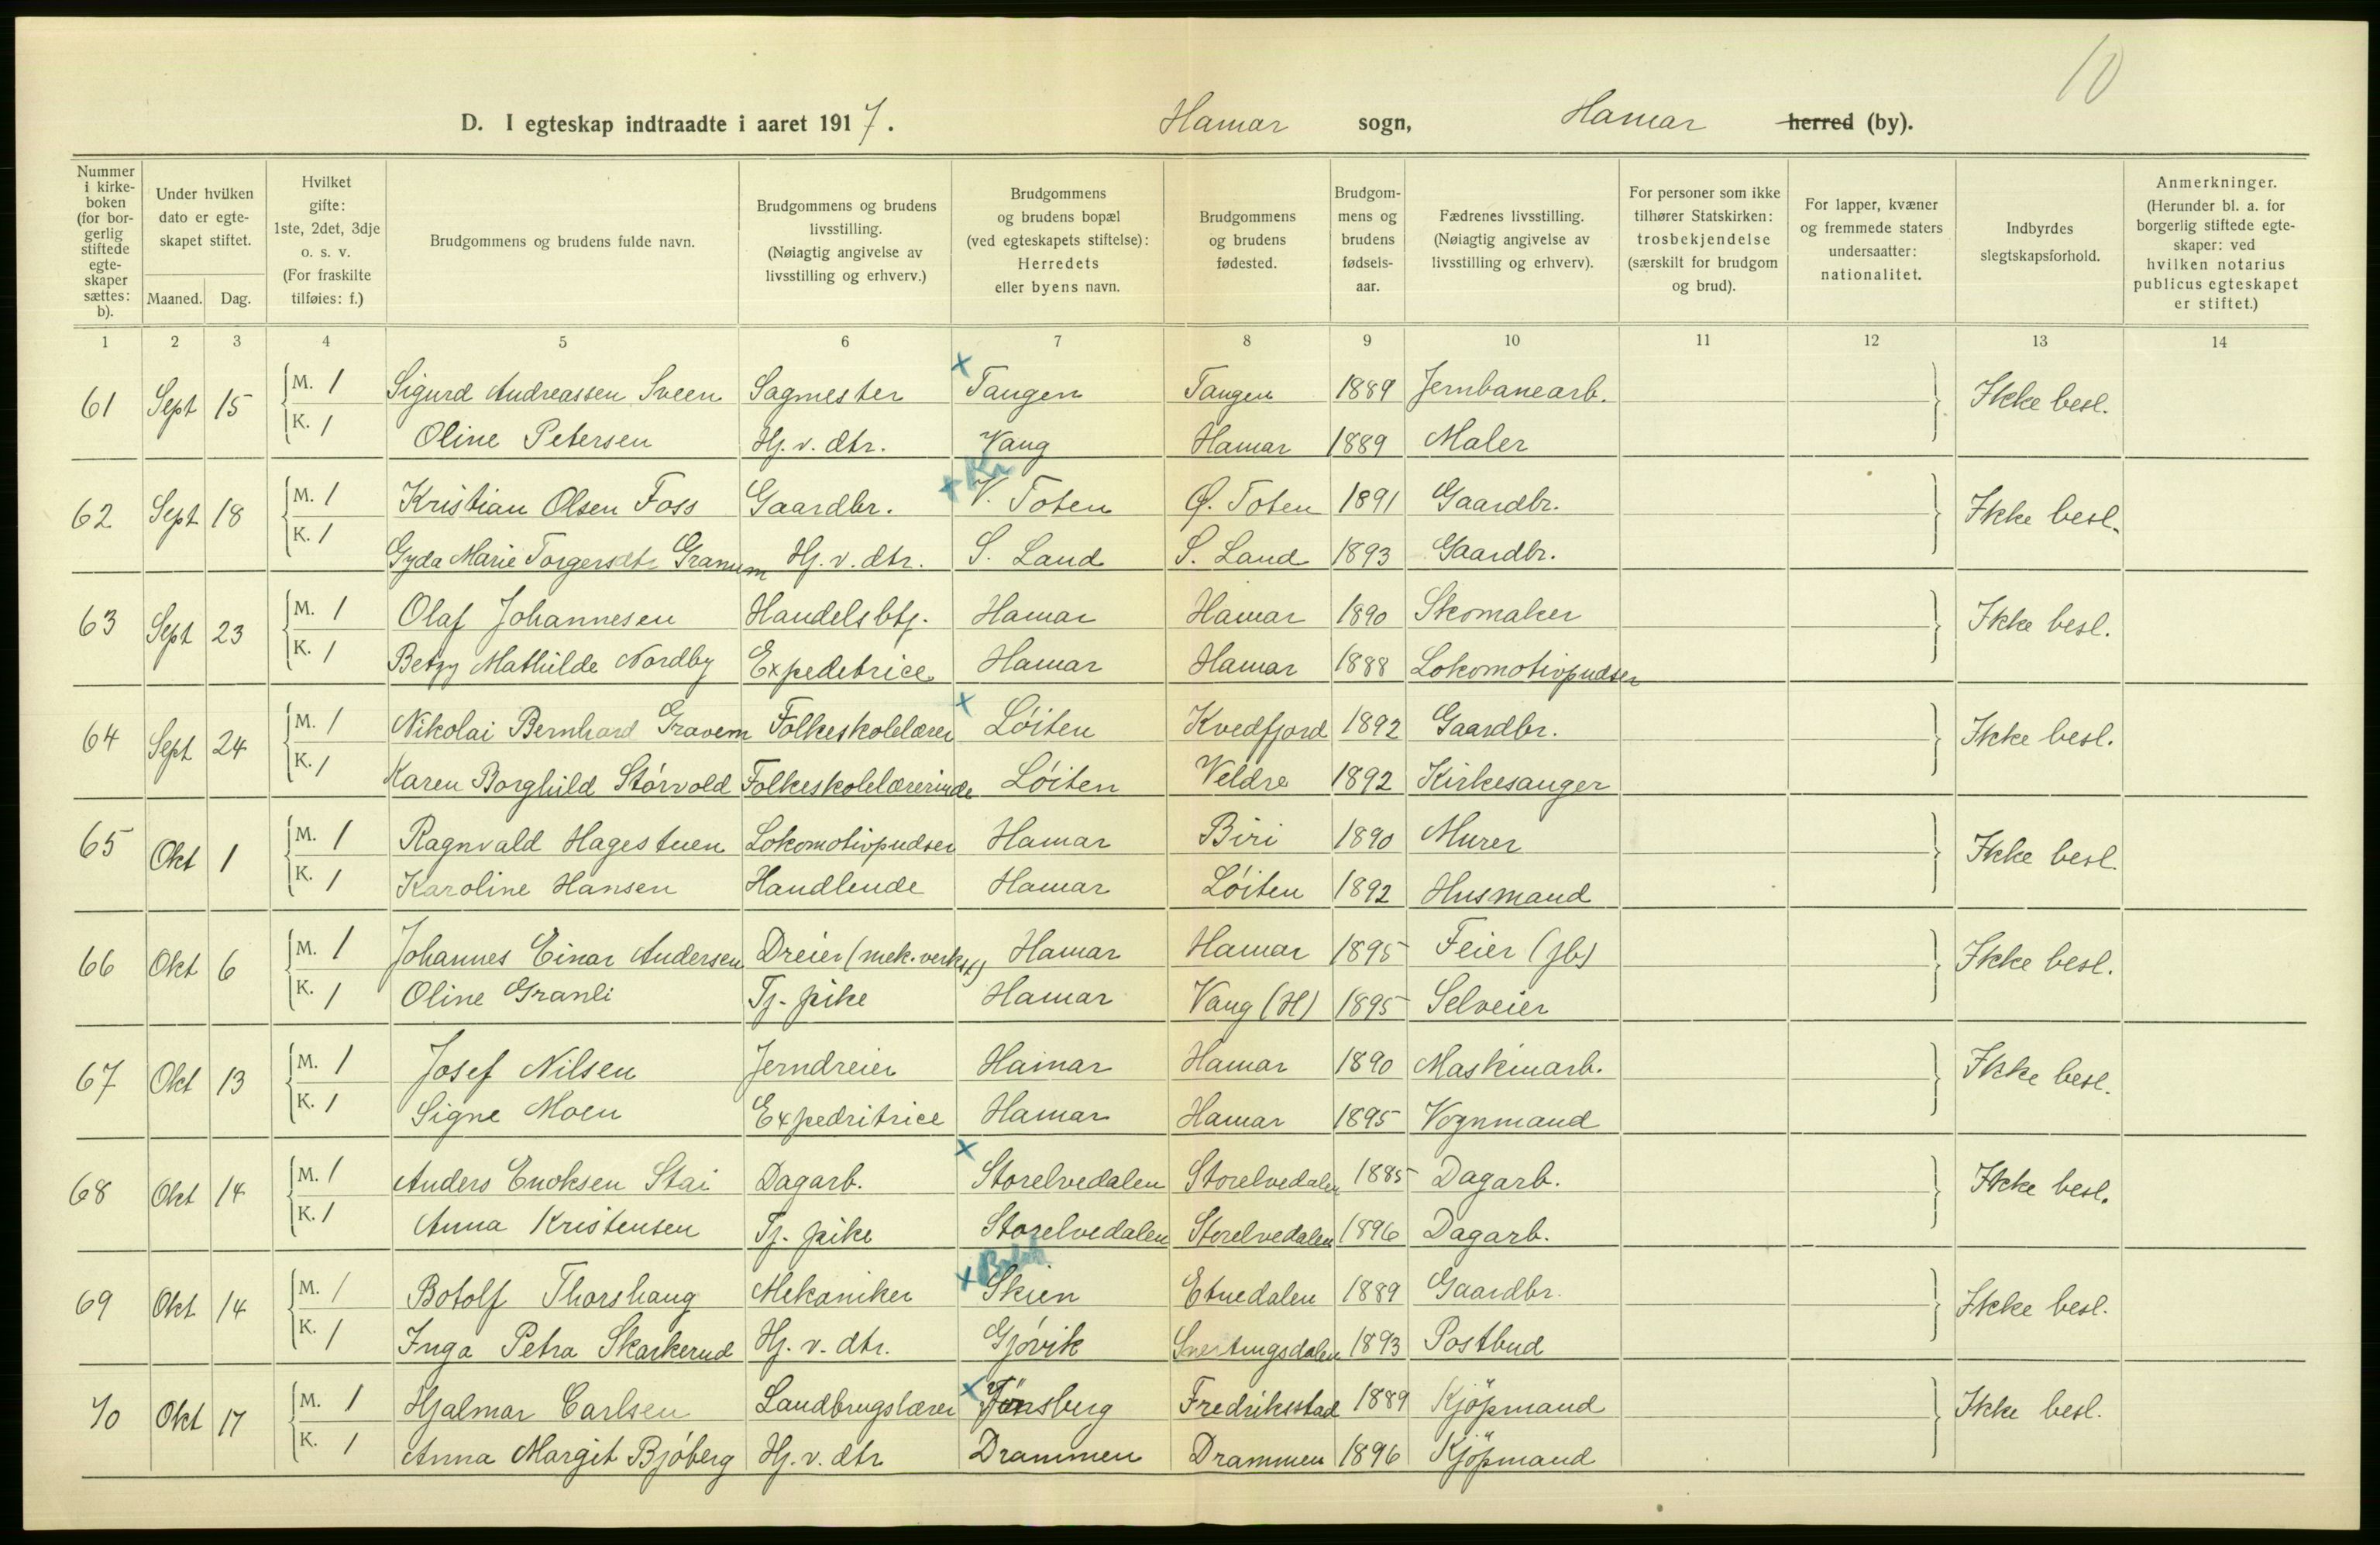 10
D. I egteskap indtraadte i aaret 1917. Hamar sogn, Hamar herred (by).
Nummer i kirke-boken (for bor-gerlig stiftede egte-skaper sættes: b).
Under hvilken dato er egte-skapet stiftet.
Maaned. Dag.
Hvilket gifte: 1ste, 2det, 3dje o. s. v. (For fraskilte tilføies: f.)
Brudgommens og brudens fulde navn.
Brudgommens og brudens livsstilling. (Nøiagtig angivelse av livsstilling og erhverv.)
Brudgommens og brudens bopæl (ved egteskapets stiftelse): Herredets eller byens navn.
Brudgommens og brudens fødested.
Brudgom-mens og brudens fødsels-aar.
Fædrenes livsstilling. (Nøiagtig angivelse av livsstilling og erhverv).
For personer som ikke tilhører Statskirken: trosbekjendelse (særskilt for brudgom og brud).
For lapper, kvæner og fremmede staters undersaatter: nationalitet.
Indbyrdes slegtskapsforhold.
Anmerkninger. (Herunder bl. a. for borgerlig stiftede egte-skaper: ved hvilken notarius publicus egteskapet er stiftet.)
1 2 3 4 5 6 7 8 9 10 11 12 13 14
61 Sept 15 M. 1 Sigurd Andreassen Sveen Sagmester Tangen Tangen 1889 Jernbanearb. Ikke besl.
K. 1 Oline Petersen Hj. v. dtr. Vang Hamar 1889 Maler
62 Sept 18 M. 1 Kristian Olsen Foss Gaardbr. V. Toten Ø. Toten 1891 Gaardbr. Ikke besl.
K. 1 Gyda Marie Torgersdtr Granum Hj. v. dtr. S. Land S. Land 1893 Gaardbr.
63 Sept 23 M. 1 Olaf Johannesen Handelsbtj. Hamar Hamar 1890 Skomaker Ikke besl.
K. 1 Betzy Mathilde Nordby Expeditrice Hamar Hamar 1888 Lokomotivpudser
64 Sept 24 M. 1 Nikolai Bernhard Gravem Folkeskolelærer Løiten Kvedfjord 1892 Gaardbr. Ikke besl.
K. 1 Karen Borghild Størvold Folkeskolelærerinde Løiten Veldre 1892 Kirkesanger
65 Okt 1 M. 1 Ragnvald Hagestuen Lokomotivpudser Hamar Biri 1890 Murer Ikke besl.
K. 1 Karoline Hansen Handlende Hamar Løiten 1892 Husmand
66 Okt 6 M. 1 Johannes Einar Andersen Dreier (mek. verkst) Hamar Hamar 1895 Feier (jb) Ikke besl.
K. 1 Oline Granli Tj. pike Hamar Vang (H) 1895 Selveier
67 Okt 13 M. 1 Josef Nilsen Jerndreier Hamar Hamar 1890 Maskinarb. Ikke besl.
K. 1 Signe Moen Expedritrice Hamar Hamar 1895 Vognmand
68 Okt 14 M. 1 Anders Enoksen Stai Dagarb. Storelvedalen Storelvedalen 1885 Dagarb. Ikke besl.
K. 1 Anna Kristensen Tj. pike Storelvedalen Storelvedalen 1896 Dagarb.
69 Okt 14 M. 1 Botolf Thorshaug Mekaniker Skien Etnedalen 1889 Gaardbr. Ikke besl.
K. 1 Inga Petra Skarkerud Hj. v. dtr. Gjøvik Snertingsdalen 1893 Postbud
70 Okt 17 M. 1 Hjalmar Carlsen Landbrugslærer Tönsberg Fredriksstad 1889 Kjöpmand Ikke besl.
K. 1 Anna Margit Bjøberg Hj. v. dtr Drammen Drammen 1896 Kjöpmand